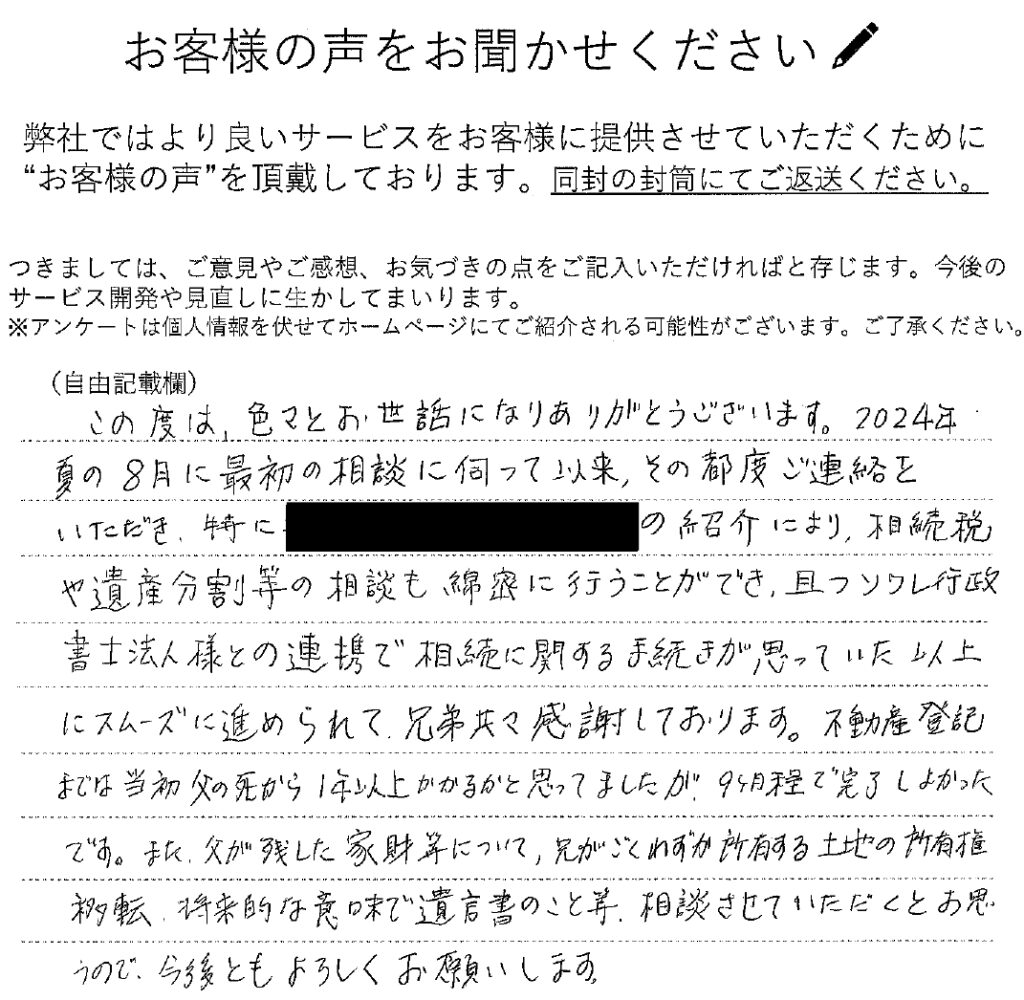 お客様の声をお聞かせください
弊社ではより良いサービスをお客様に提供させていただくために
“お客様の声”を頂戴しております。同封の封筒にてご返送ください。
つきましては、ご意見やご感想、お気づきの点をご記入いただければと存じます。今後の
サービス開発や見直しに生かしてまいります。
※アンケートは個人情報を伏せてホームページにてご紹介される可能性がございます。ご了承ください。
（自由記載欄）
この度は、色々とお世話になりありがとうございます。2024年
夏の8月に最初の相談に伺って以来、その都度ご連絡を
いただき、特に の紹介により、相続税
や遺産分割等の相談も綿密に行うことができ、且つソワレ行政
書士法人様との連携で相続に関する手続きが思っていた以上
にスムーズに進められて、兄弟共々感謝しております。不動産登記
までは当初父の死から1年以上かかるかと思ってましたが、9ヶ月程で完了しよかった
です。また、父が残した家財等について、兄がごくわずか所有する土地の所有権
移転、将来的な意味で遺言書のこと等、相談させていただくとお思
うので、今後ともよろしくお願いします。